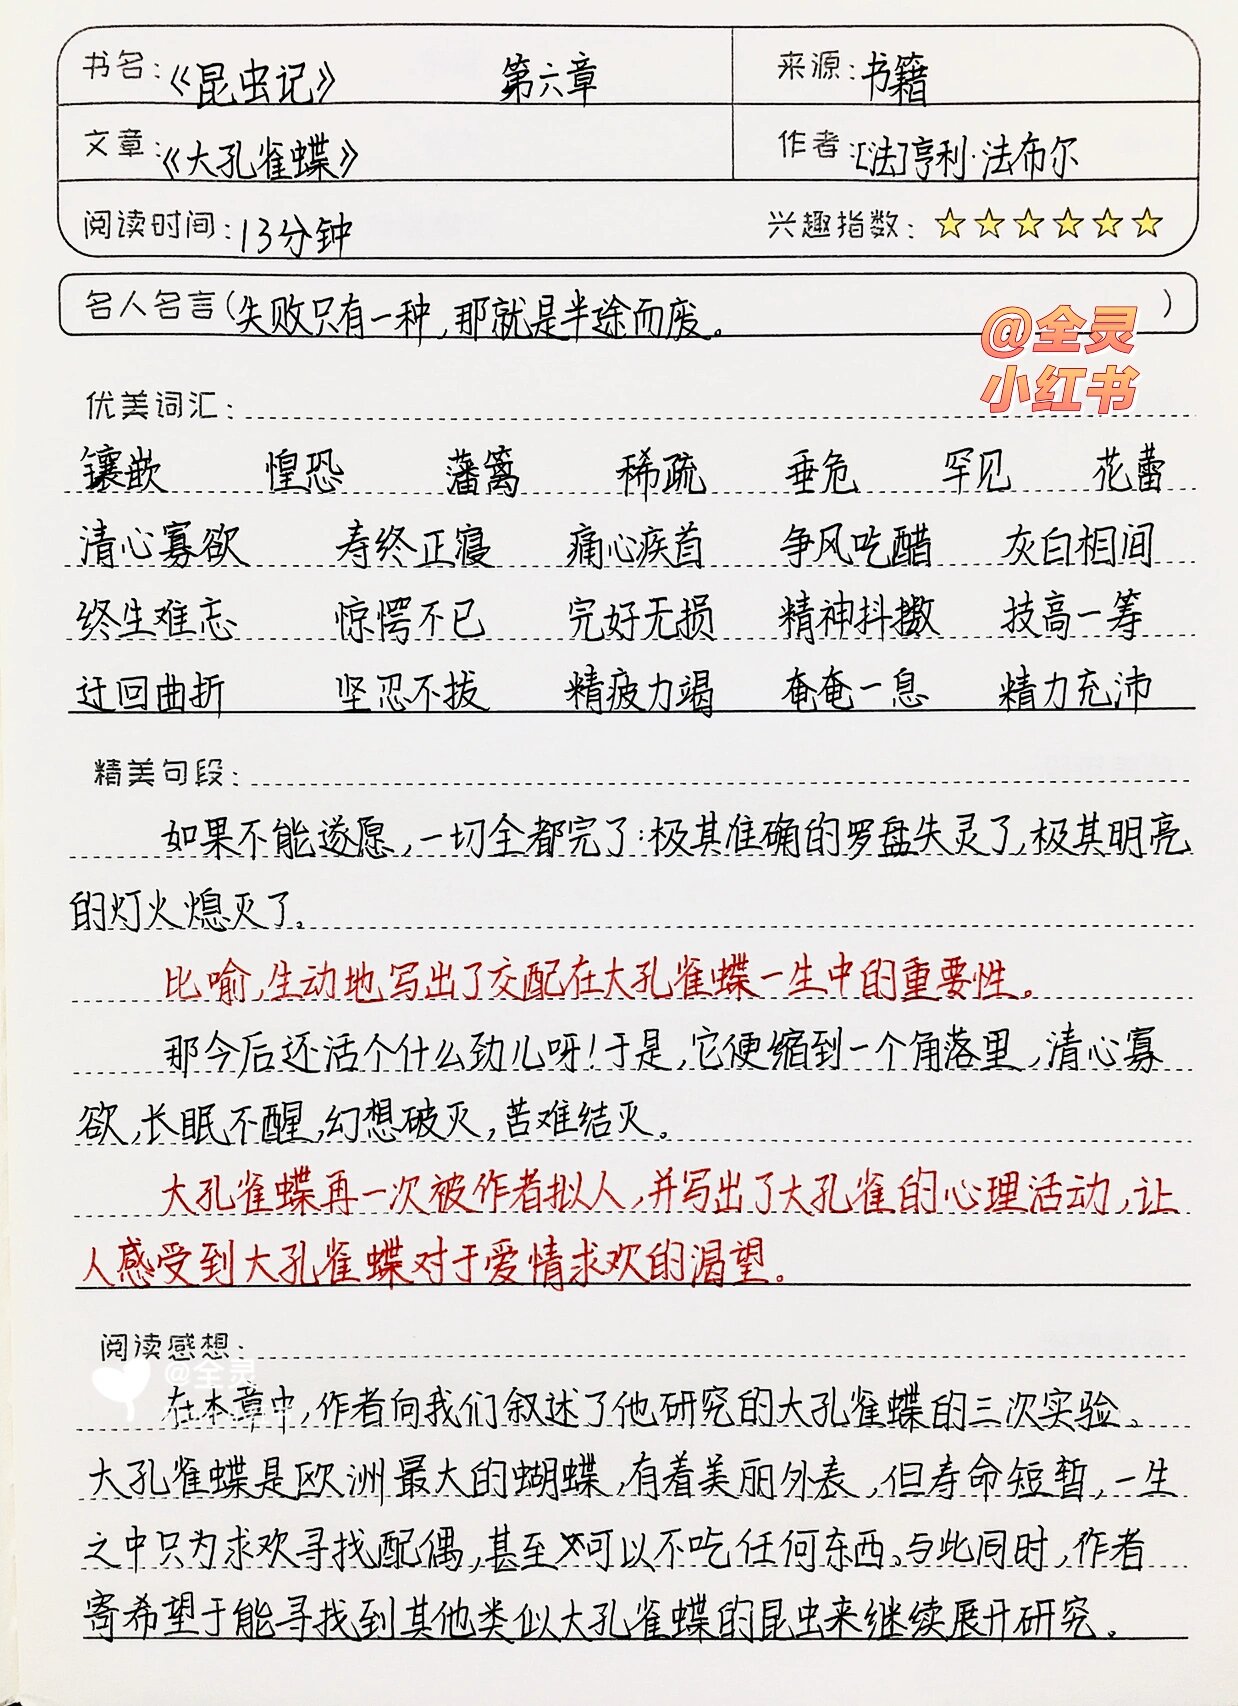 书名:《昆虫记》 第六章 来源:书籍
文章:《大孔雀蝶》 作者:[法]亨利·法布尔
阅读时间:13分钟 兴趣指数:
名人名言(失败只有一种,那就是半途而废。)
@全灵
小红书
优美词汇:
镶嵌 惶恐 藩篱 稀疏 垂危 罕见 花蕾
清心寡欲 寿终正寝 痛心疾首 争风吃醋 灰白相间
终生难忘 惊愕不已 完好无损 精神抖擞 技高一筹
迂回曲折 坚忍不拔 精疲力竭 奄奄一息 精力充沛
精美句段:
如果不能遂愿,一切全都完了:极其准确的罗盘失灵了,极其明亮
的灯火熄灭了。
比喻,生动地写出了交配在大孔雀蝶一生中的重要性。
那今后还活个什么劲儿呀!于是,它便缩到一个角落里,清心寡
欲,长眠不醒,幻想破灭,苦难结灭。
大孔雀蝶再一次被作者拟人,并写出了大孔雀的心理活动,让
人感受到大孔雀蝶对于爱情求欢的渴望。
阅读感想:
@全灵
在本章中,作者向我们叙述了他研究的大孔雀蝶的三次实验。
大孔雀蝶是欧洲最大的蝴蝶,有着美丽外表,但寿命短暂,一生
之中只为求欢寻找配偶,甚至可以不吃任何东西。与此同时,作者
寄希望于能寻找到其他类似大孔雀蝶的昆虫来继续展开研究。